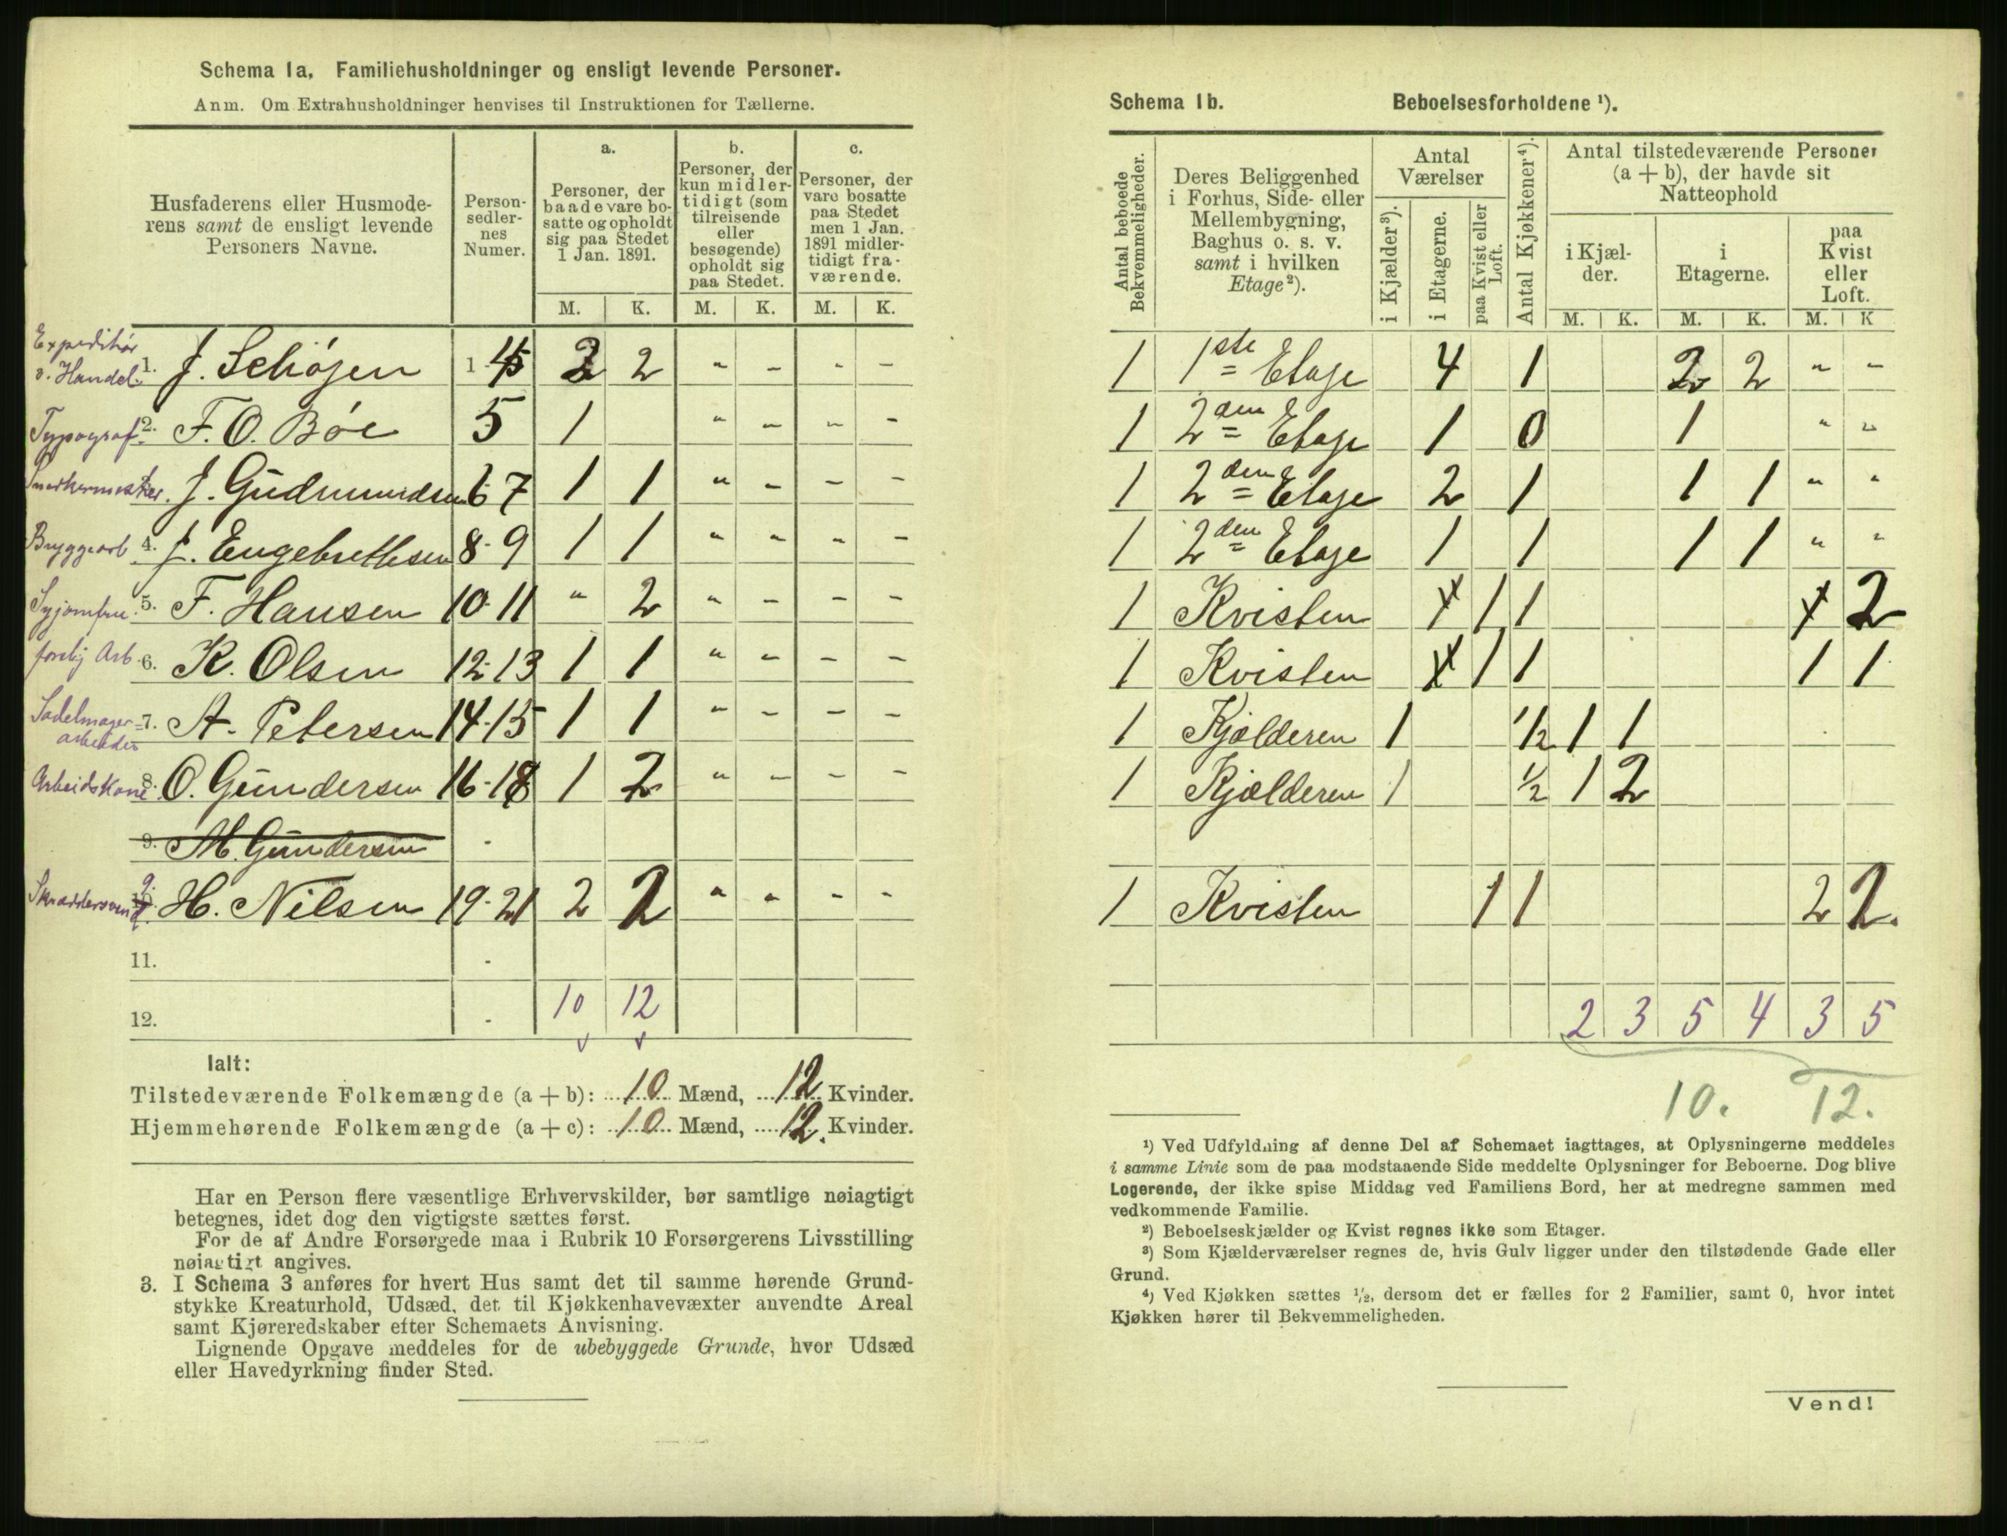 Schema 1a. Familiehusholdninger og ensligt levende Personer.
Anm. Om Extrahusholdninger henvises til Instruktionen for Tællerne.
Husfaderens eller Husmoderens samt de ensligt levende Personers Navne.
Personsedlernes Numer.
a. Personer, der baade vare bosatte og opholdt sig paa Stedet 1 Jan. 1891.
b. Personer, der kun midlertidigt (som tilreisende eller besøgende) opholdt sig paa Stedet.
c. Personer, der vare bosatte paa Stedet men 1 Jan. 1891 midlertidigt fraværende.
M. K. M. K. M. K.
Expeditør v. Handel 1. J. Schøjen 1-4 2 2 " - - -
Typograf 2. F. O. Bøe 5 1 " - - -
J. Gudmundsen 6-7 1 1 " - - -
Bryggearb 4. J. Engebrethsen 8-9 1 1 " " - -
Syjomfru 5. F. Hansen 10-11 " 2 " - - -
Arb 6. K. Olsen 12-13 1 1 " - - -
Sadelmager arbeider 7. A. Petersen 14-15 1 1 " - - -
Arbeidskone 8. O. Gundersen 16-18 1 2 " - - -
9. M. Gundersen
Skræddersvend 9. H. Nilsen 19-21 2 2 " " - -
11.
12. 10 12
Ialt:
Tilstedeværende Folkemængde (a + b): 10 Mænd, 12 Kvinder.
Hjemmehørende Folkemængde (a + c): 10 Mænd, 12. Kvinder.
Har en Person flere væsentlige Erhvervskilder, bør samtlige nøiagtigt
betegnes, idet dog den vigtigste sættes først.
For de af Andre Forsørgede maa i Rubrik 10 Forsørgerens Livsstilling
nøiagtigt angives.
3. I Schema 3 anføres for hvert Hus samt det til samme hørende Grund-
stykke Kreaturhold, Udsæd, det til Kjøkkenhavevæxter anvendte Areal
samt Kjøreredskaber efter Schemaets Anvisning.
Lignende Opgave meddeles for de ubebyggede Grunde, hvor Udsæd
eller Havedyrkning finder Sted.
Schema 1b. Beboelsesforholdene ¹).
Antal beboede Bekvemmeligheder.
Deres Beliggenhed i Forhus, Side- eller Mellembygning, Baghus o. s. v. samt i hvilken Etage²).
Antal Værelser
i Kjælder³).
i Etagerne.
paa Kvist eller Loft.
Antal Kjøkkener⁴).
Antal tilstedeværende Personer (a + b), der havde sit Natteophold
i Kjælder.
i Etagerne.
paa Kvist eller Loft.
M. K. M. K. M. K
1 1ste Etage 4 1 2 2 " -
1 2den Etage 1 0 1 " "
1 2den Etage 2 1 1 1 " "
1 2den Etage 1 1 1 1 " "
1 Kvisten 1 1 2
1 Kvisten 1 1 1 1
1 Kjælderen 1 1/2 1 1
1 Kjælderen 1 1/2 1 2
1 Kvisten 1 1 2 2.
2 3 5 4 3 5
10. 12.
¹) Ved Udfyldning af denne Del af Schemaet iagttages, at Oplysningerne meddeles
i samme Linie som de paa modstaaende Side meddelte Oplysninger for Beboerne. Dog blive
Logerende, der ikke spise Middag ved Familiens Bord, her at medregne sammen med
vedkommende Familie.
²) Beboelseskjælder og Kvist regnes ikke som Etager.
³) Som Kjælderværelser regnes de, hvis Gulv ligger under den tilstødende Gade eller
Grund.
⁴) Ved Kjøkken sættes ½, dersom det er fælles for 2 Familier, samt 0, hvor intet
Kjøkken hører til Bekvemmeligheden.
Vend!